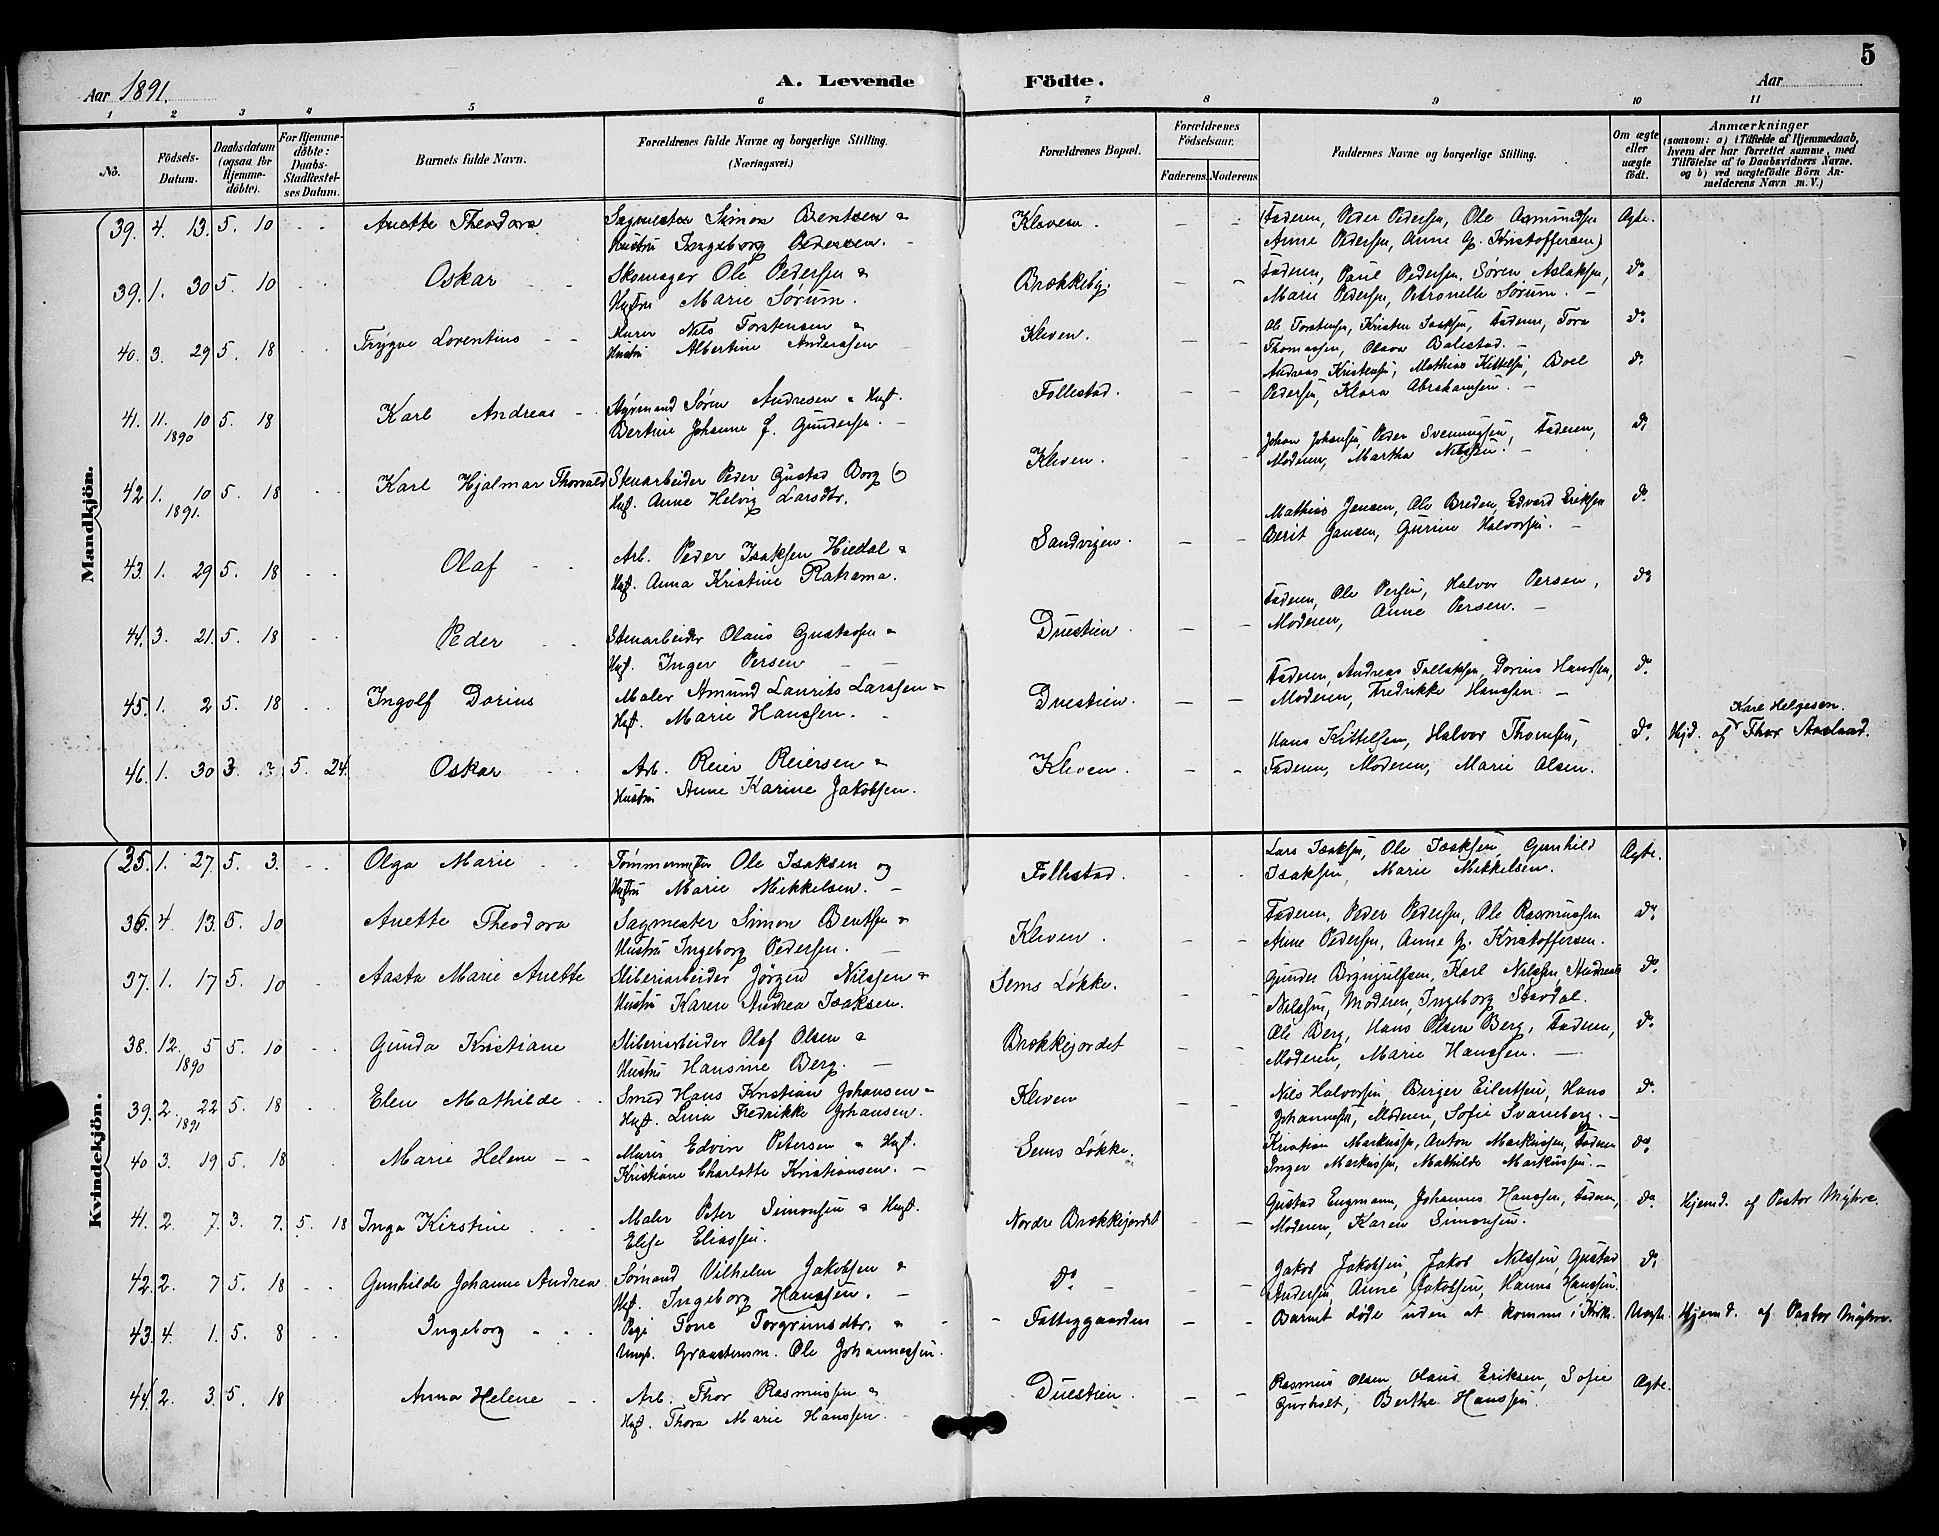 5
Aar 1891.
A. Levende
Födte.
Aar
1 2 3 4 5 6 7 8 9 10 11
No.
Födsels-
Datum.
Daabsdatum
(ogsaa for
Hjemme-
döbte).
For Hjemme-
döbte:
Daabs-
Stadfæstel-
ses Datum.
Barnets fulde Navn.
Forældrenes fulde Navne og borgerlige Stilling.
(Næringsvei.)
Forældrenes Bopæl.
Forældrenes
Födselsaar.
Faderens. Moderens.
Faddernes Navne og borgerlige Stilling.
Om ægte
eller
uægte
födt.
Anmærkninger
(saasom: a) i Tilfælde af Hjemmedaab,
hvem der har forrettet samme, med
Tilföielse af to Daabsvidners Navne.
og b) ved uægtefödte Börn An-
melderens Navn m. V.)
Mandkjön.
39. 4. 13. 5. 10 Anette Theodora Sagmester Simon Bentsen & Kleven. (Faderen, Peder Pedersen, Ole Asmundsen Ægte.
Hustru Ingeborg Pedersen. Anne Pedersen, Anne G. Kristoffersen)
39. 1. 30 5. 10 Oskar Skomager Ole Pedersen & Brækkeby. Faderen, Paul Pedersen, Søren Aslaksen, do
Hustru Marie Sørum. Marie Pedersen, Petronelle Sørum.
40. 3. 29 5. 18 Trygve Lorentius Murer Nils Torstensen & Kleven. Ole Torstensen, Kristen Isaksen, Faderen, Tora do
Hustru Albertine Andersen Thomassen, Olava Balestad.
41. 11. 10 5. 18 Karl Andreas Styrmand Søren Andresen & Hust. Follestad. Andreas Kristensen, Mathias Kittelsen, Boel do
1890 Bertine Johanne f. Gundersen. Pedersen, Klara Abrahamsen.
42 1. 10 5. 18 Karl Hjalmar Thorvald Stenarbeider Peder Gustad Borg & Kleven. Johan Johansen, Peder Svenningsen, Faderen, do
1891. Hust. Anne Helvig Larsdtr. Moderen, Martha Nilsen.
43. 1. 29 5. 18 Olaf Arb. Peder Isaksen Hiedal & Sandvigen. Mathias Jensen, Ole Breden, Edvard Eriksen do
Hust. Anna Kristine Rakama. Berit Jansen, Gurine Halvorsen.
44. 3. 21. 5. 18 Peder Stenarbeider Olaus Gustavsen & Duestien. Faderen, Ole Persen, Halvor Persen, do
Hust. Inger Persen Moderen, Anne Persen.
45. 1. 2 5. 18 Ingolf Dorius Maler Amund Laurits Larssen & Duestien. Faderen, Andreas Tallaksen, Dorius Hanssen, do
Hust. Marie Hanssen. Moderen, Fredrikke Hanssen.
Karl Helgesen.
46. 1. 30 3. 5. 24. Oskar Arb. Reier Reiersen & Kleven. Hans Kittelsen, Halvor Thomsen, do Hjd. af Thor Aaland.
Hustru Anne Karine Jakobsen. Faderen, Moderen, Marie Olsen.
Kvindekjön.
35. 1. 27. 5. 3. Olga Marie Tømmermester Ole Isaksen og Follestad. Lars Isaksen, Ole Isaksen, Gunhild Ægte.
Hustru Marie Mikkelsen. Isaksen, Marie Mikkelsen.
36. 4. 13. 5. 10 Anette Theodora Sagmester Simon Bentsen & Kleven. Faderen, Peder Pedersen, Ole Rasmussen do
Hustru Ingeborg Pedersen. Anne Pedersen, Anne G. Kristoffersen.
37. 1. 17 5. 10 Aasta Marie Anette Miberiarbeider Jörgen Nilssen & Sems Løkke. Gunder Brynjulfsen, Karl Nilssen, Andreas do
Hustru Karen Andrea Isaksen. Nilssen, Moderen, Ingeborg Stavdal.
38. 12. 5 5. 10 Gunda Kristiane Miberiarbeider Olaf Olsen & Brækkejordet Ole Berg, Hans Olsen Berg, Faderen, do
1890 Hustru Hansine Berg. Moderen, Marie Hanssen.
39. 2. 22 5. 18 Elen Mathilde Smed Hans Kristian Johansen & Kleven Nils Halvorsen, Berger Eilertsen, Hans do
1891 Hust. Lina Fredrikke Johansen. Johannesen, Moderen, Sofie Svaneberg.
40 3. 19 5. 18 Marie Helene Murer Edvin Petersen & Hust. Sems Løkke. Kristian Markussen, Anton Markussen, Faderen do
Kristiane Charlotte Kristiansen. Inger Markussen, Mathilde Markussen.
41. 2. 7. 3. 7. 5. 18 Inga Kirstine Maler Peter Simonsen & Hust. Nordre Brækkejordet Gustav Engmann, Johannes Hanssen, Faderen, do Hjemd. af Pastor Myhre.
Elise Eliassen. Moderen, Karen Simonsen.
42. 2. 7 5. 18 Gunhilde Johanne Andrea Sømand Vilhelm Jakobsen & do Jakob Jakobsen, Jakob Nilssen, Gustav do
Hust. Ingeborg Hanssen. Andersen, Anne Jakobsen, Hanna Hanssen.
43. 4. 1. 5. 8 Ingeborg Pige Tone Torgrimsdtr. & Fattiggaarden Barnet døde uden at komme i Kirke. Uægte. Hjemd. af Pastor Myhre.
Ungk. Graastensm. Ole Johannessen.
44. 2. 3. 5. 18 Anna Helene Arb. Thor Rasmussen & Duestien. Rasmus Olsen, Olaus Eriksen, Sofie Ægte.
Hust. Thora Marie Hanssen. Berthe Hanssen.